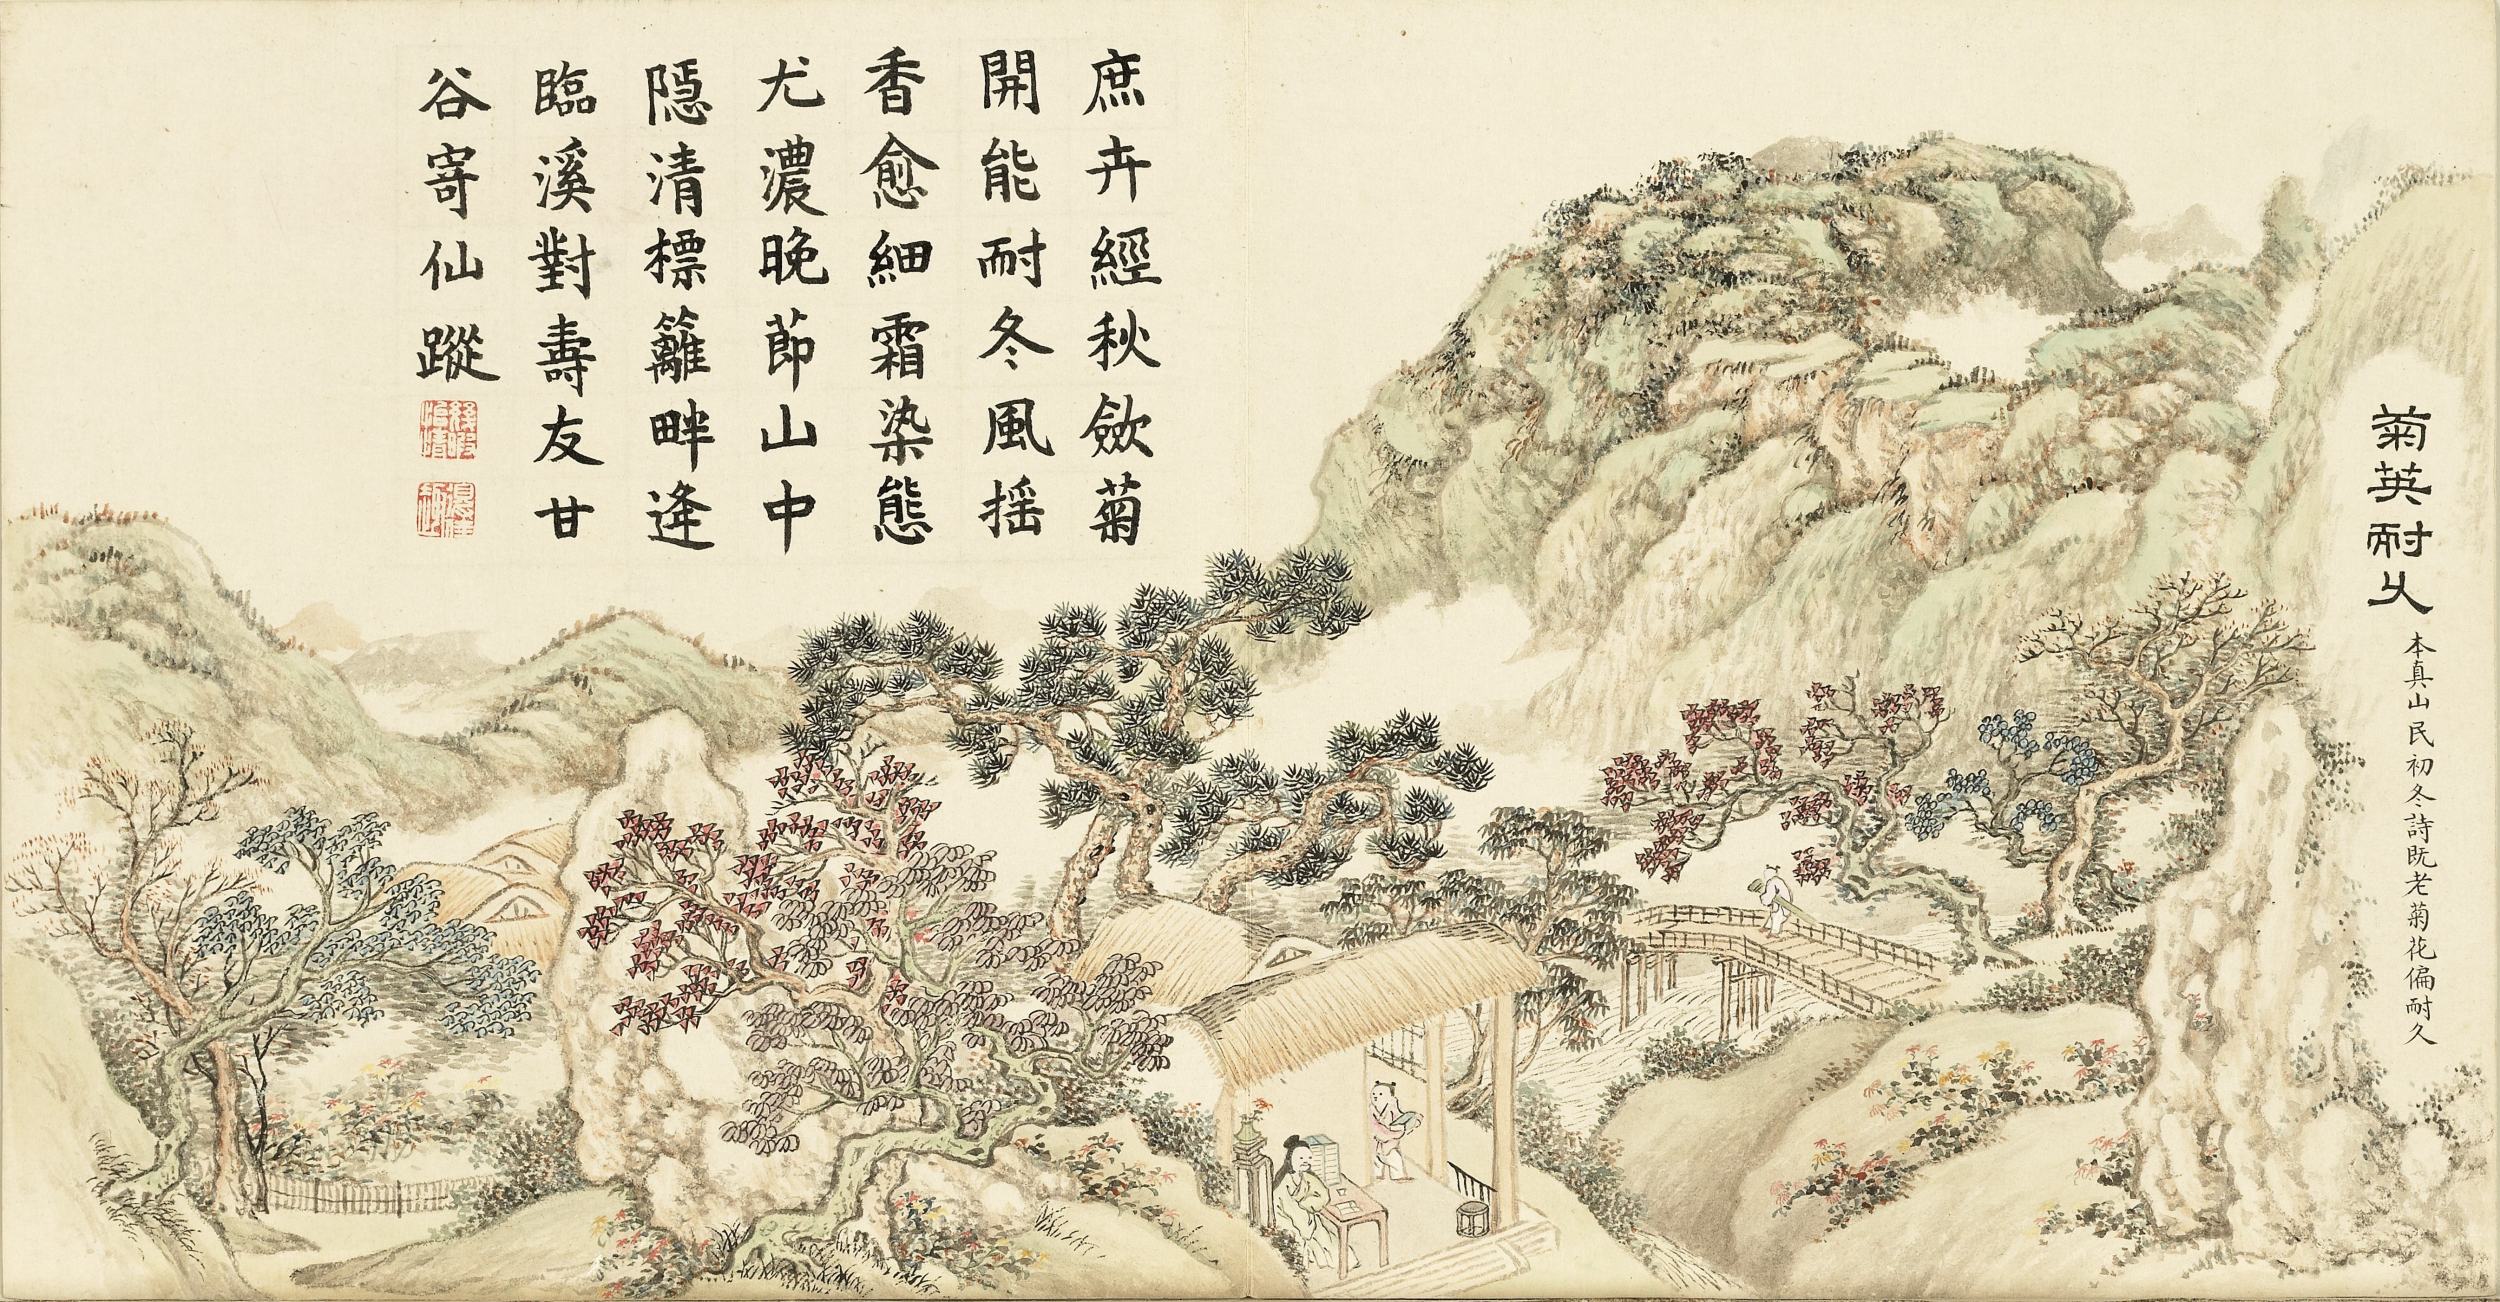 菊英耐久
本真山民初冬詩既老菊花偏耐久
庶卉經秋歛菊
開能耐冬風摇
香愈細霜染態
尤濃晚莭山中
隠清標籬畔逢
臨溪對壽友甘
谷寄仙蹤